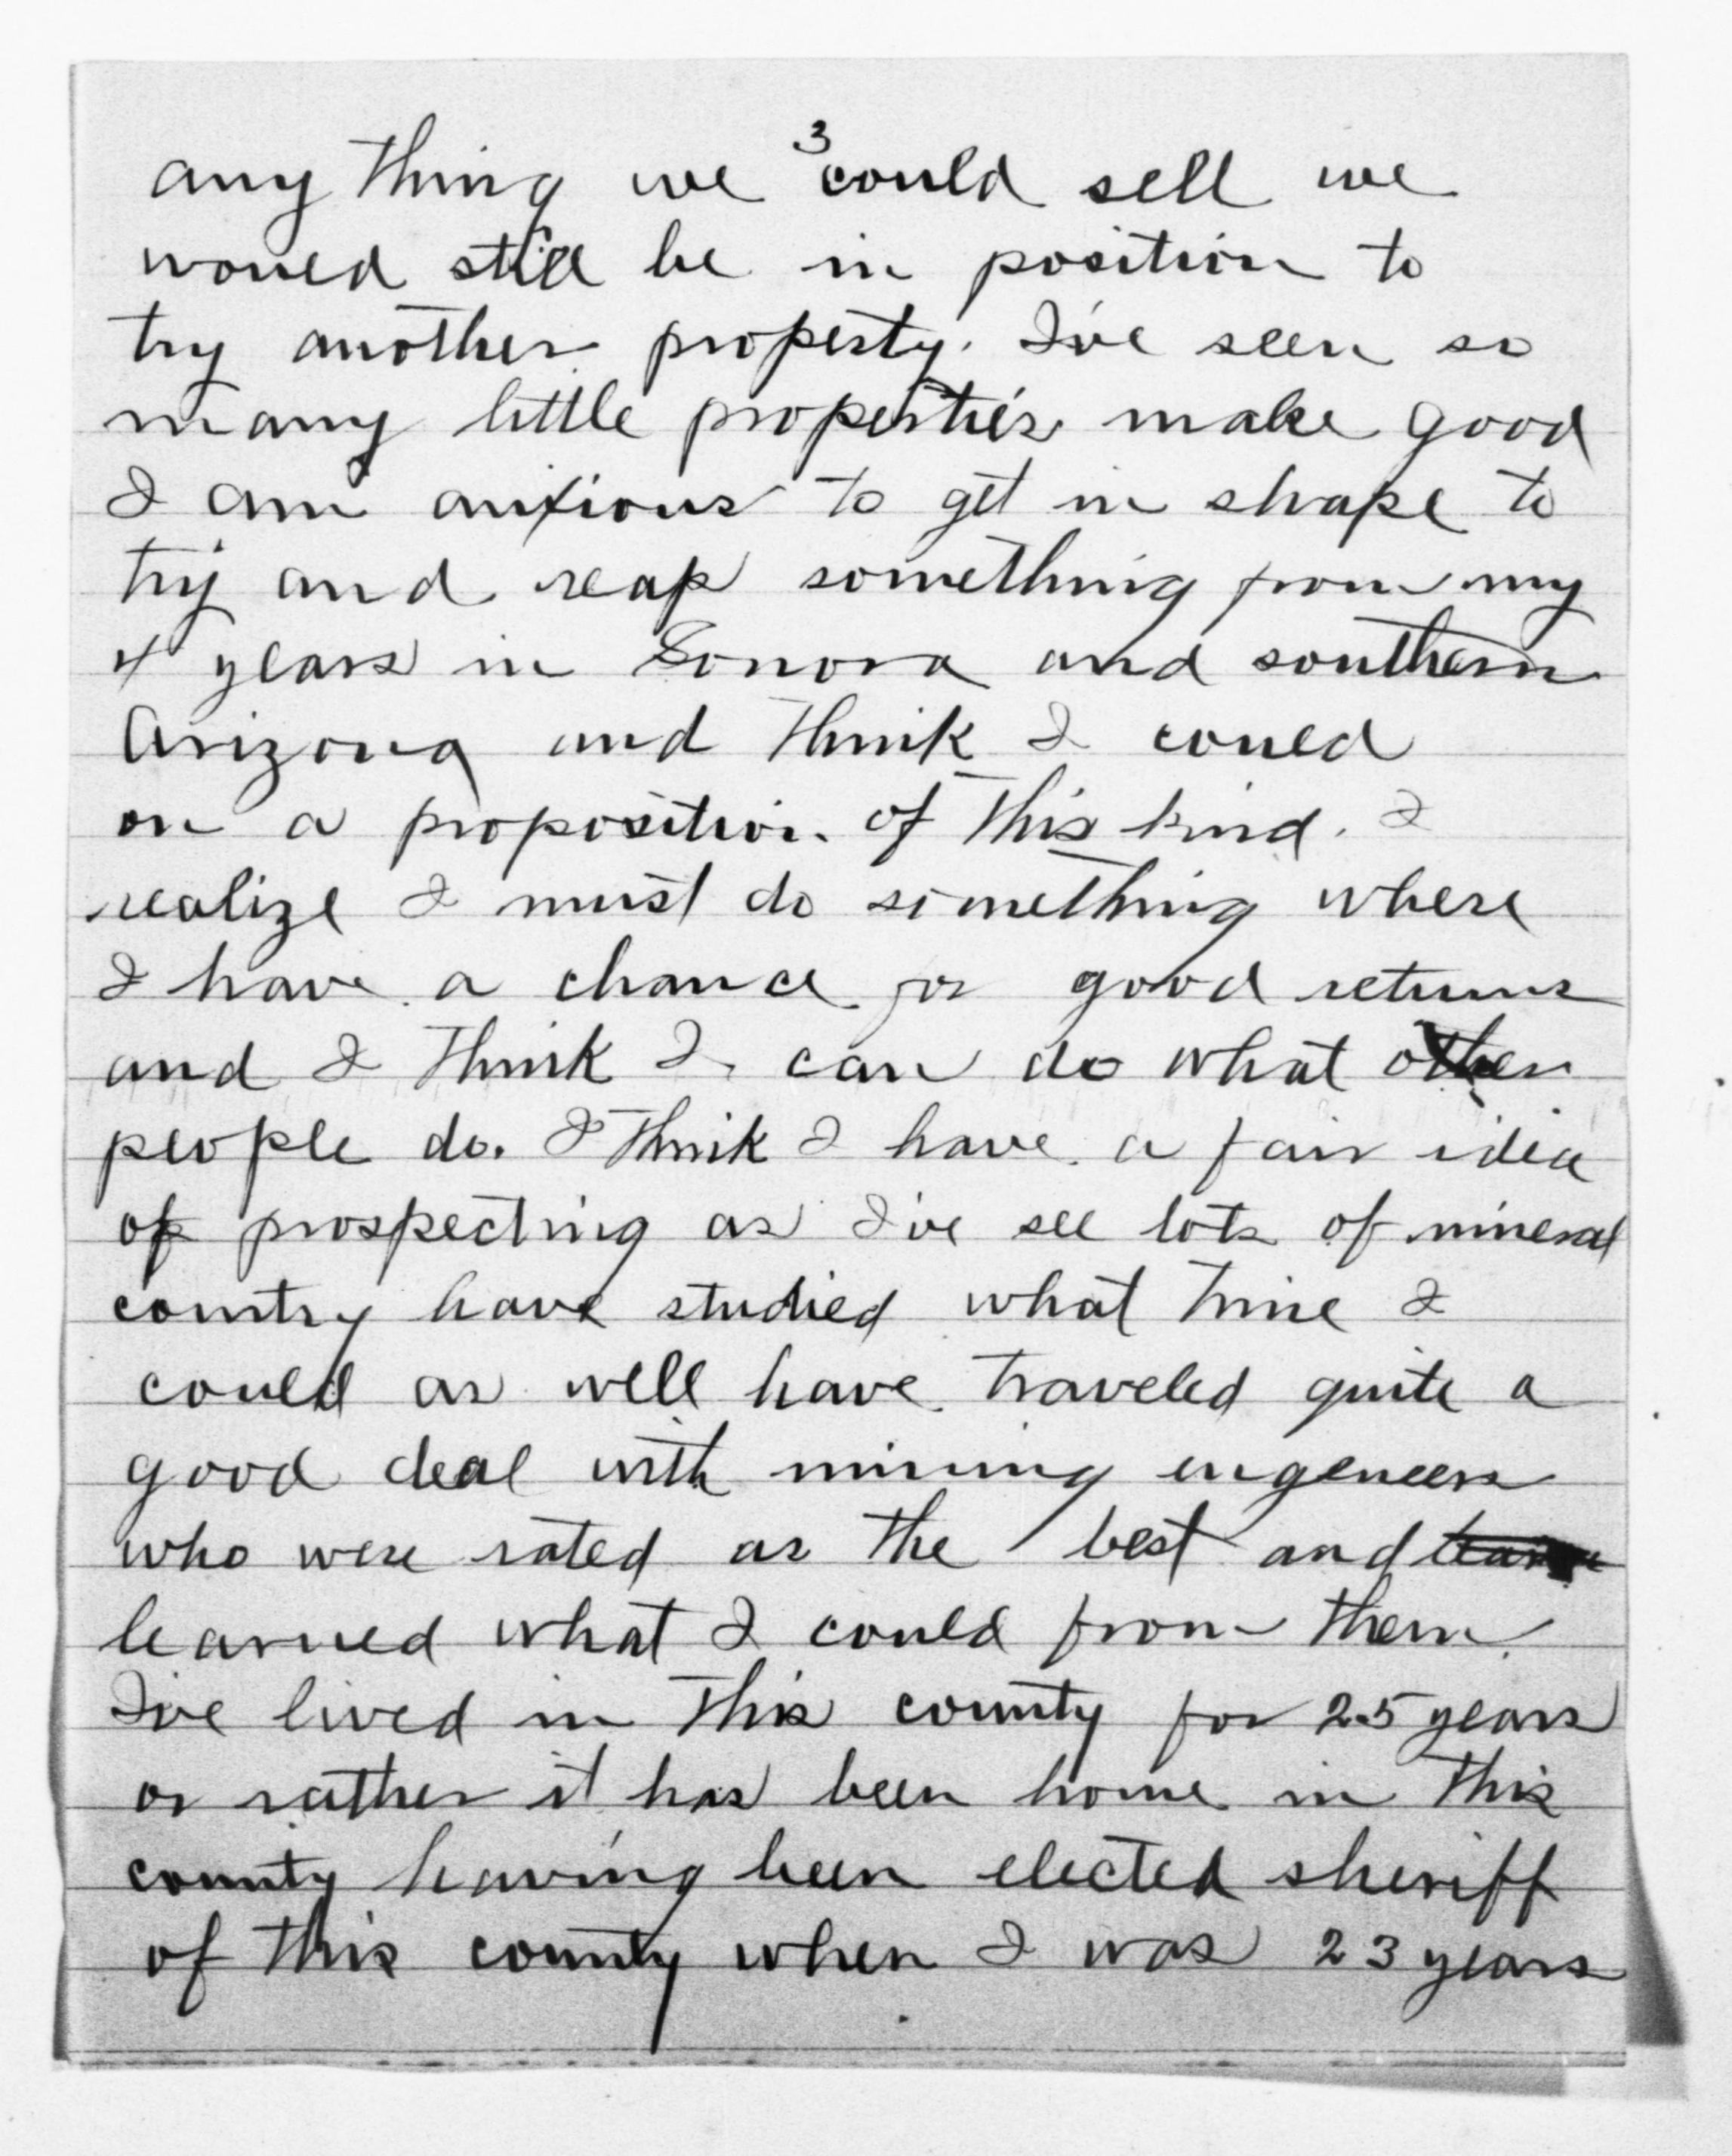 3
any thing we could sell we
would still be in position to
try another property. I've seen so
many little properties make good
I am anxious to get in shape to
try and reap something from my
4 years in Sonora and southern
Arizona and think I could
on a proposition of this kind. I
realize I must do something where
I have a chance for good returns
and I think I can do what other
people do. I think I have a fair idea
of prospecting as I've see lots of mineral
country have studied what time I
could as well have traveled quite a
good deal with mining engeneers
who were rated as the best and
learned what I could from them.
I've lived in this county for 25 years
or rather it has been home in this
county having been elected sheriff
of this county when I was 23 years